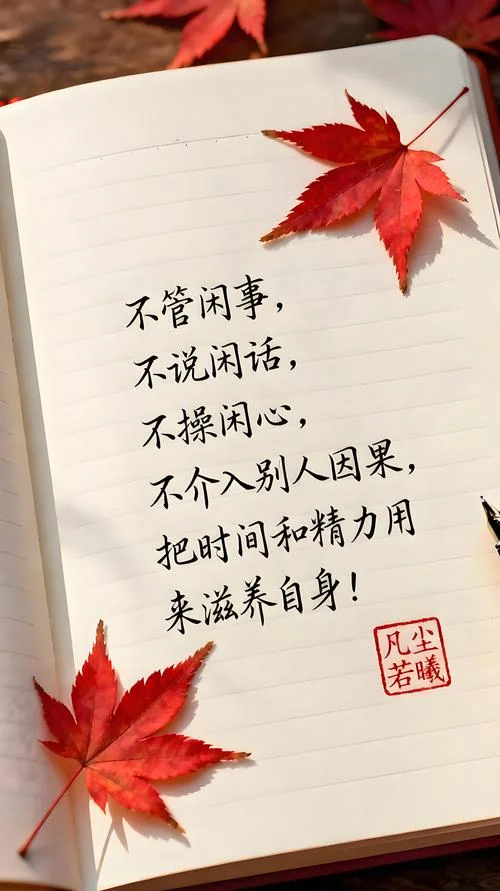 不管闲事，
不说闲话，
不操闲心，
不介入别人因果，
把时间和精力用
来滋养自身！
凡尘
若曦